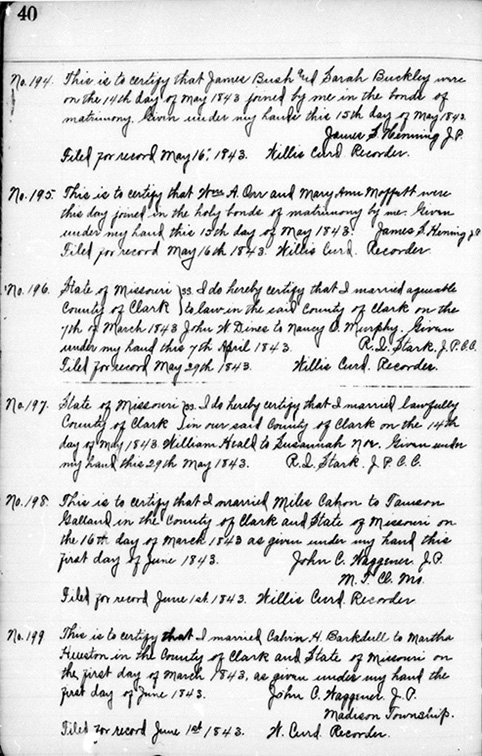 40
No. 194. This is to certify that James Bush and Sarah Buckley were
on the 14th day of May 1843 joined by me in the bonds of
matrimony. Given under my hand this 15th day of May 1843.
James S. Henning J.P.
Filed for record May 16th, 1843. Willis Curd. Recorder.
No. 195. This is to certify that Wm A. Orr and Mary Ann Moffatt were
this day joined in the holy bonds of matrimony by me. Given
under my hand this 15th day of May 1843. James S. Henning J.P.
Filed for record May 16th 1843. Willis Curd. Recorder.
No. 196. State of Missouri } ss. I do hereby certify that I married agreeable
County of Clark } to law in the said County of Clark on the
7th of March 1843 John W Dines to Nancy O. Murphy. Given
under my hand this 7th April 1843. R. I. Stark. J.P.C.C.
Filed for record May 29th 1843. Willis Curd. Recorder.
No. 197. State of Missouri } ss. I do hereby certify that I married lawfully
County of Clark } in our said County of Clark on the 14th
day of May 1843 William Heald to Susannah Nor. Given under
my hand this 29th May 1843. R. I. Stark. J.P.C.C.
No. 198. This is to certify that I married Miles Cahon to Tamson
Galland in the County of Clark and State of Missouri on
the 16th day of March 1843 as given under my hand this
first day of June 1843. John C. Waggener. J.P.
M.T. Cl. Mo.
Filed for record June 1st. 1843. Willis Curd. Recorder
No. 199 This is to certify that I married Calvin H. Barkdull to Martha
Hueston in the County of Clark and State of Missouri on
the first day of March 1843, as given under my hand the
first day of June 1843. John C. Waggener. J.P.
Madison Township.
Filed for record June 1st 1843. W. Curd. Recorder.